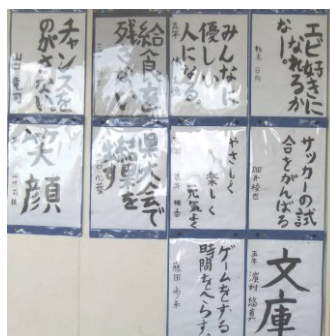 エビ好きに
なれるか
なー。
みんなに
優しい
人になる。
給食を
残さない
チャンスを
のがさない。
サッカーの試
合をがんばる
やさしく
楽しく
元気よく
県大会で
結果を
残す
笑顔
文庫
五年 濱村 悠真
ゲームをする
時間をへらす。